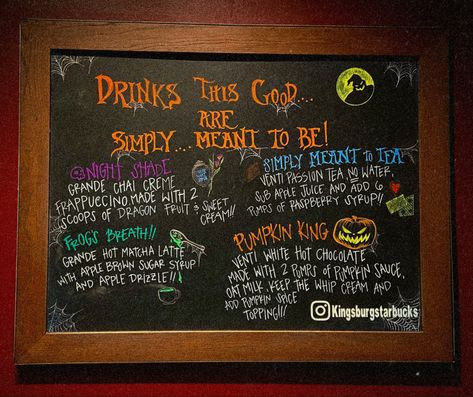 DRINKS THIS GOOD....
ARE
SIMPLY.... MEANT TO BE!
NIGHT SHADE
GRANDE CHAI CREME
FRAPPUCCINO MADE WITH 2
SCOOPS OF DRAGON FRUIT & SWEET
CREAM!!
SIMPLY MEANT to TEA
VENTI PASSION TEA NO WATER,
SUB APPLE JUICE AND ADD 6
PUMPS OF RASPBERRY SYRUP!!
FROG'S BREATH!!
GRANDE HOT MATCHA LATTE
WITH APPLE BROWN SUGAR SYRUP
AND APPLE DRIZZLE!!
PUMPKIN KING
VENTI WHITE HOT CHOCOLATE
MADE WITH 2 PUMPS OF PUMPKIN SAUCE,
OAT MILK. KEEP THE WHIP CREAM AND
ADD PUMPKIN SPICE
TOPPING!!!
Kingsburgstarbucks